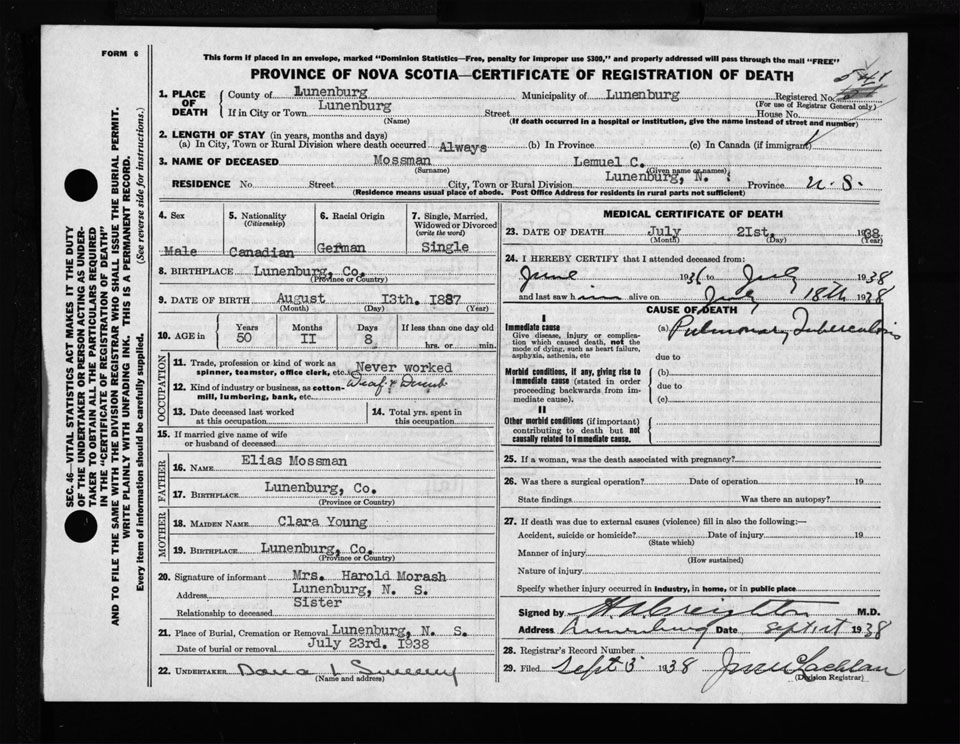 FORM 6
This form if placed in an envelope, marked "Dominion Statistics—Free, penalty for improper use $300," and properly addressed will pass through the mail "FREE"
PROVINCE OF NOVA SCOTIA—CERTIFICATE OF REGISTRATION OF DEATH
541
1. PLACE OF DEATH
County of Lunenburg Municipality of Lunenburg Registered No.
(For use of Registrar General only)
If in City or Town Lunenburg Street House No.
(Name) (If death occurred in a hospital or institution, give the name instead of street and number)
2. LENGTH OF STAY (in years, months and days)
(a) In City, Town or Rural Division where death occurred Always (b) In Province (c) In Canada (if immigrant)
3. NAME OF DECEASED Mossman Lemuel C.
(Surname) (Given name or names)
RESIDENCE No. Street City, Town or Rural Division Lunenburg, N. Province N.S.
(Residence means usual place of abode. Post Office Address for residents in rural parts not sufficient)
4. Sex Male
5. Nationality (Citizenship) Canadian
6. Racial Origin German
7. Single, Married, Widowed or Divorced (write the word) Single
8. BIRTHPLACE Lunenburg, Co.
(Province or Country)
9. DATE OF BIRTH August 13th. 1887
(Month) (Day) (Year)
10. AGE in Years Months Days If less than one day old
50 II 8 hrs. or min.
OCCUPATION
11. Trade, profession or kind of work as spinner, teamster, office clerk, etc. Never worked
Deaf & Dumb
12. Kind of industry or business, as cotton-mill, lumbering, bank, etc.
13. Date deceased last worked at this occupation
14. Total yrs. spent in this occupation
15. If married give name of wife or husband of deceased
FATHER
16. NAME Elias Mossman
17. BIRTHPLACE Lunenburg, Co.
(Province or Country)
MOTHER
18. MAIDEN NAME Clara Young
19. BIRTHPLACE Lunenburg, Co.
(Province or Country)
20. Signature of informant Mrs. Harold Morash
Address Lunenburg, N. S.
Relationship to deceased Sister
21. Place of Burial, Cremation or Removal Lunenburg, N. S.
Date of burial or removal July 23rd. 1938
22. UNDERTAKER Dana L Sweeny
(Name and address)
MEDICAL CERTIFICATE OF DEATH
23. DATE OF DEATH July 21st. 1938
(Month) (Day) (Year)
24. I HEREBY CERTIFY that I attended deceased from:
June 1936 to July 1938
and last saw him alive on July 18th 1938
CAUSE OF DEATH
I
Immediate cause (a) Pulmonary Tuberculosis
Give disease, injury or complication which caused death, not the mode of dying, such as heart failure, asphyxia, asthenia, etc
due to
Morbid conditions, if any, giving rise to immediate cause (stated in order proceeding backwards from immediate cause).
(b)
due to
(c)
II
Other morbid conditions (if important) contributing to death but not causally related to immediate cause.
25. If a woman, was the death associated with pregnancy?
26. Was there a surgical operation? Date of operation 19
State findings Was there an autopsy?
27. If death was due to external causes (violence) fill in also the following:—
Accident, suicide or homicide? Date of injury 19
(State which)
Manner of injury
(How sustained)
Nature of injury
Specify whether injury occurred in industry, in home, or in public place
Signed by H.A. Creighton M.D.
Address Lunenburg Date Sept 1st 1938
28. Registrar's Record Number
29. Filed Sept 3 1938
(Division Registrar)
SEC. 46—VITAL STATISTICS ACT MAKES IT THE DUTY
OF THE UNDERTAKER OR PERSON ACTING AS UNDER-
TAKER TO OBTAIN ALL THE PARTICULARS REQUIRED
IN THE "CERTIFICATE OF REGISTRATION OF DEATH"
AND TO FILE THE SAME WITH THE DIVISION REGISTRAR WHO SHALL ISSUE THE BURIAL PERMIT.
WRITE PLAINLY WITH UNFADING INK. THIS IS A PERMANENT RECORD.
Every item of information should be carefully supplied. (See reverse side for instructions.)